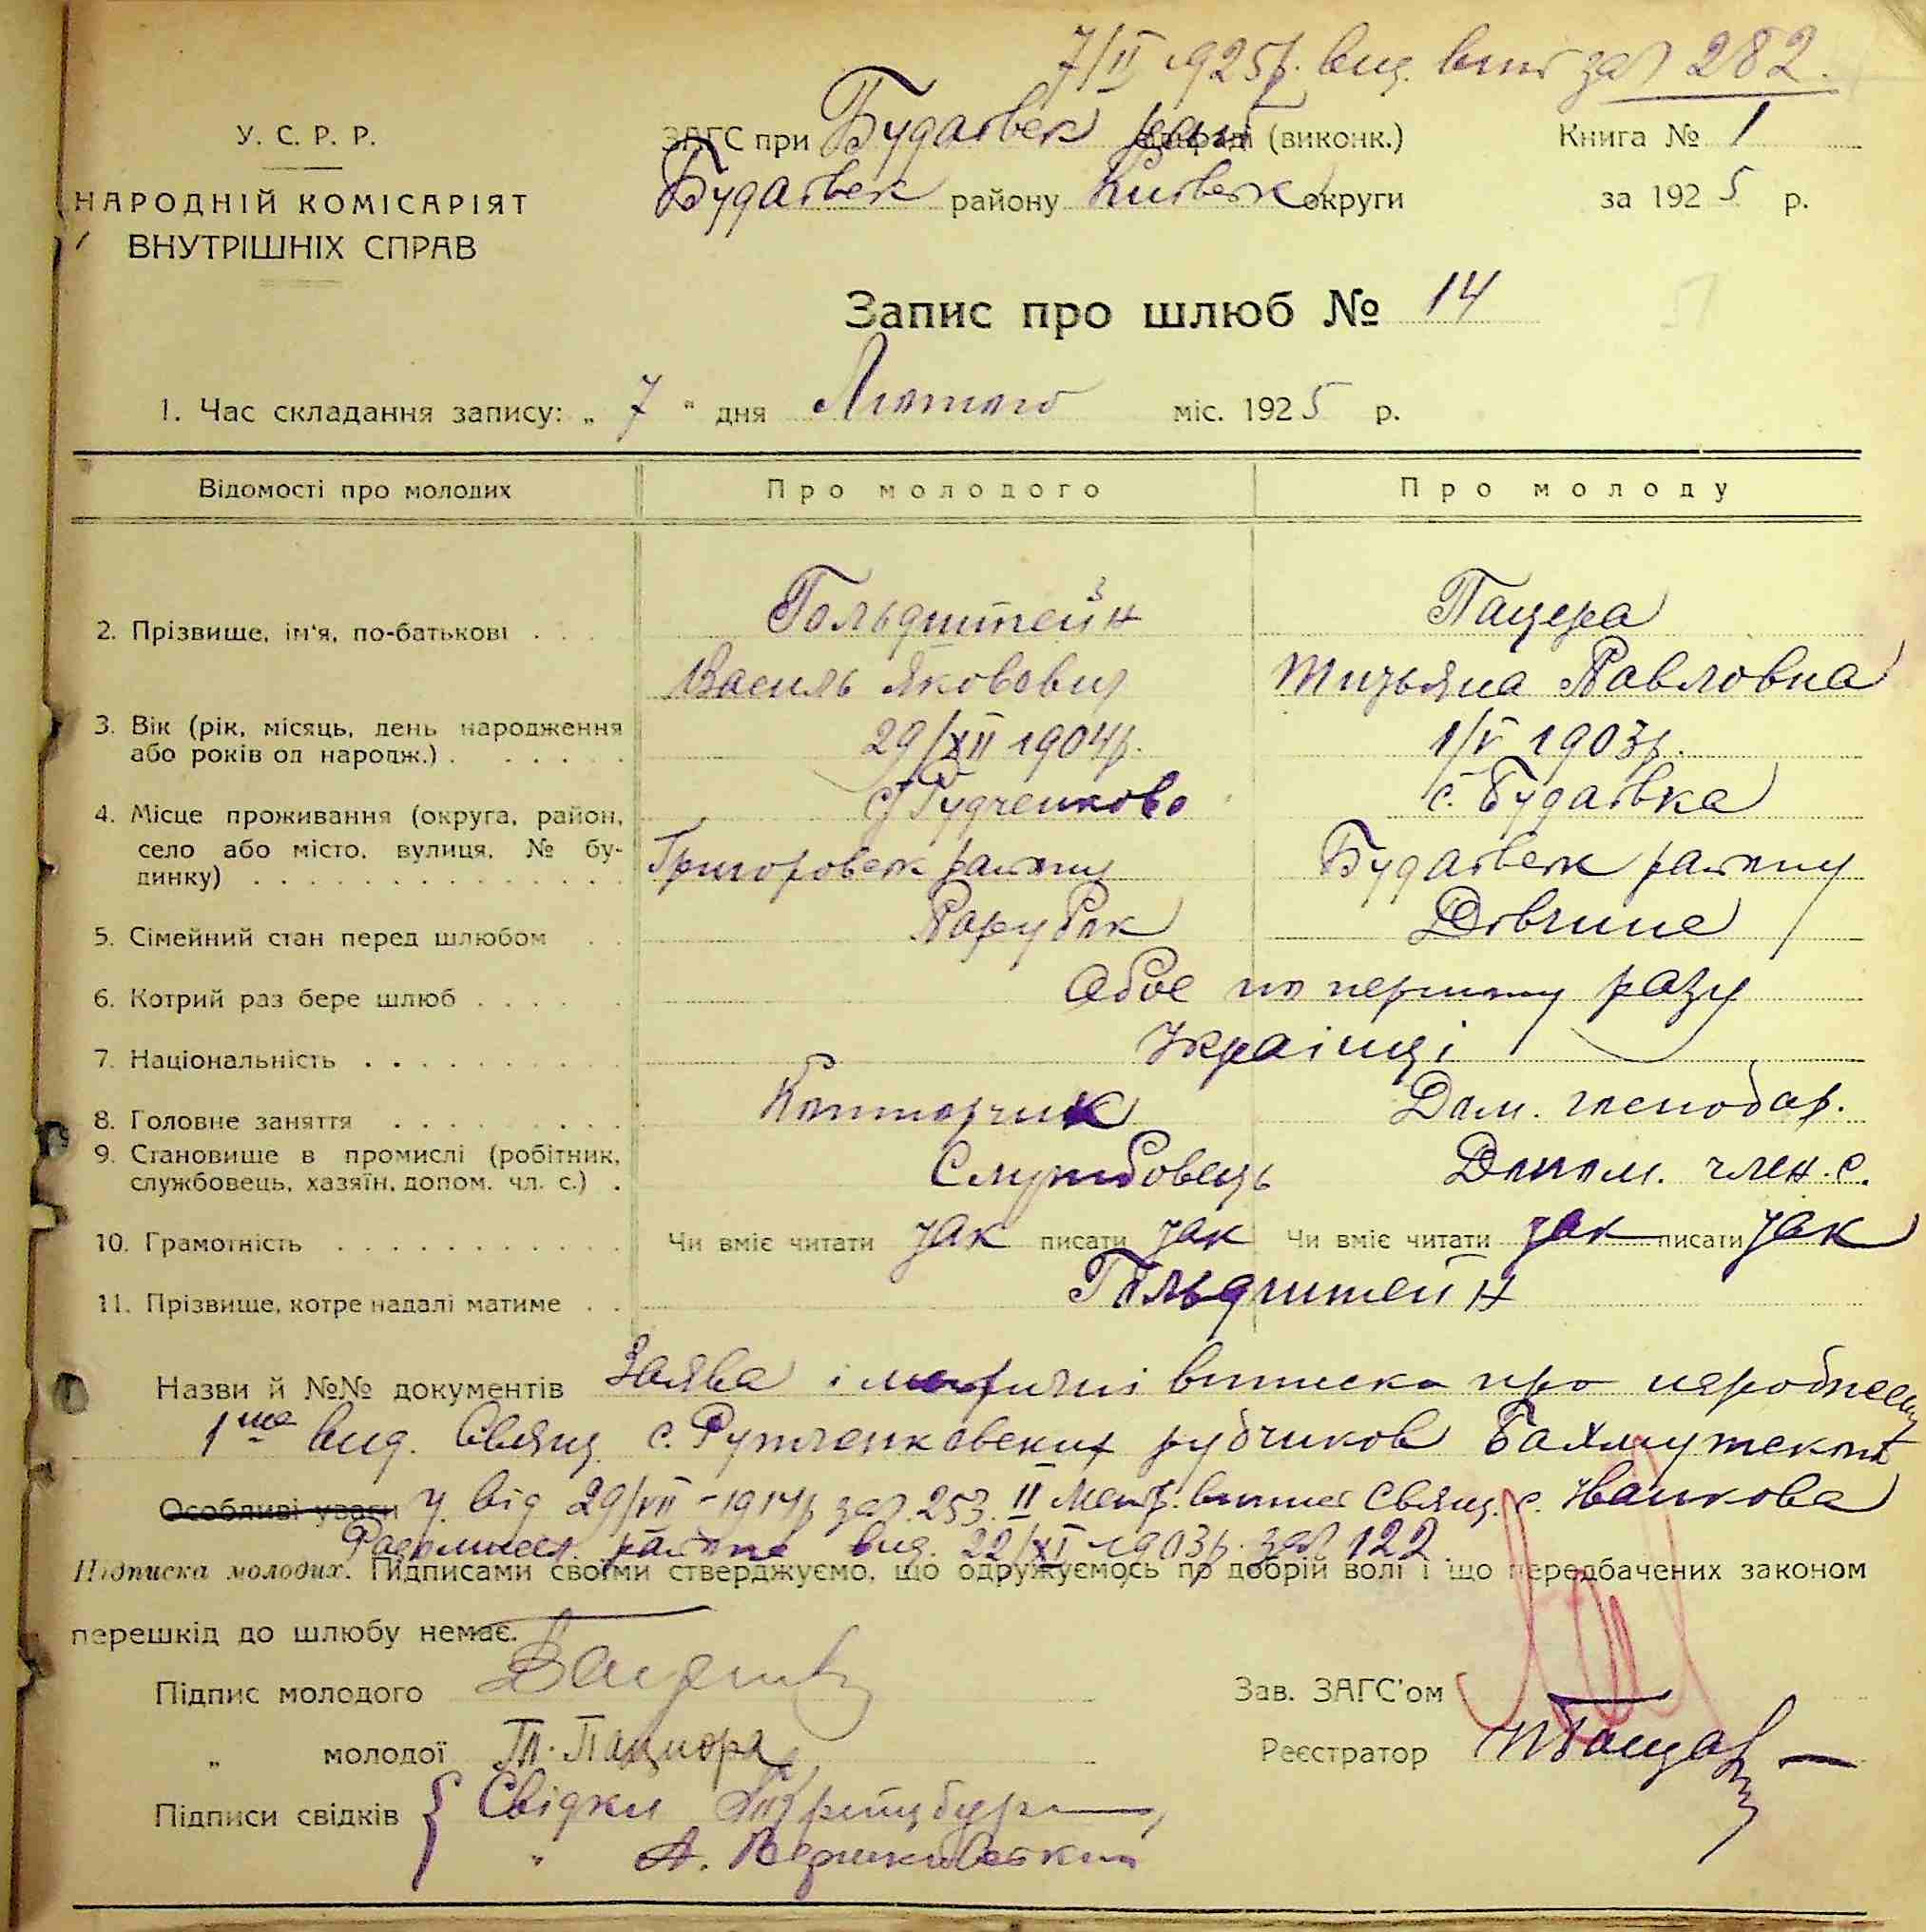 7/II 1925р. вид. вип за № 282.
У. С. Р. Р.
НАРОДНІЙ КОМІСАРІЯТ
ВНУТРІШНІХ СПРАВ
ЗАГС при Будаївськ рай (виконк.) Книга № 1
Будаївськ району Київськ округи за 1925 р.
Запис про шлюб № 14
1. Час складання запису: „ 7 “ дня Лютого міс. 1925 р.
Відомості про молодих Про молодого Про молоду
2. Прізвище, ім'я, по-батькові . . . Гольдштейн Пацера
Василь Яковович Титьяна Павловна
3. Вік (рік, місяць, день народження 29/XII 1904р. 1/V 1903р.
або років од народж.) . . . . . .
4. Місце проживання (округа, район, с. Будаївка
село або місто, вулиця, № бу- Григоровськ району Будаївськ району
динку) . . . . . . . . . . . . . .
5. Сімейний стан перед шлюбом . . Парубок Дівчина
6. Котрий раз бере шлюб . . . . . Обоє по першому разу
7. Національність . . . . . . . . . Українці
8. Головне заняття . . . . . . . . Конторчик Дом. господар.
9. Становище в промислі (робітник, Службовець Допом. член. с.
службовець, хазяїн, допом. чл. с.) .
10. Грамотність . . . . . . . . . . . Чи вміє читати так писати так Чи вміє читати так писати так
11. Прізвище, котре надалі матиме . . Гольдштейн
Назви й №№ документів Заява і метричні виписка про народження
1ша вид. Свящ. с. рудників Бахмутськ
Особливі уваги у. від 29/VII - 1914р за № 253. II Метр. випис Свящ. с.
вид. 22/XI 1903р. за № 122.
Підписка молодих. Підписами своїми стверджуємо, що одружуємось по добрій волі і що передбачених законом
перешкід до шлюбу немає.
Підпис молодого Зав. ЗАГС'ом
„ молодої Т. Пацюра Реєстратор
Підписи свідків Свідки
„ А.